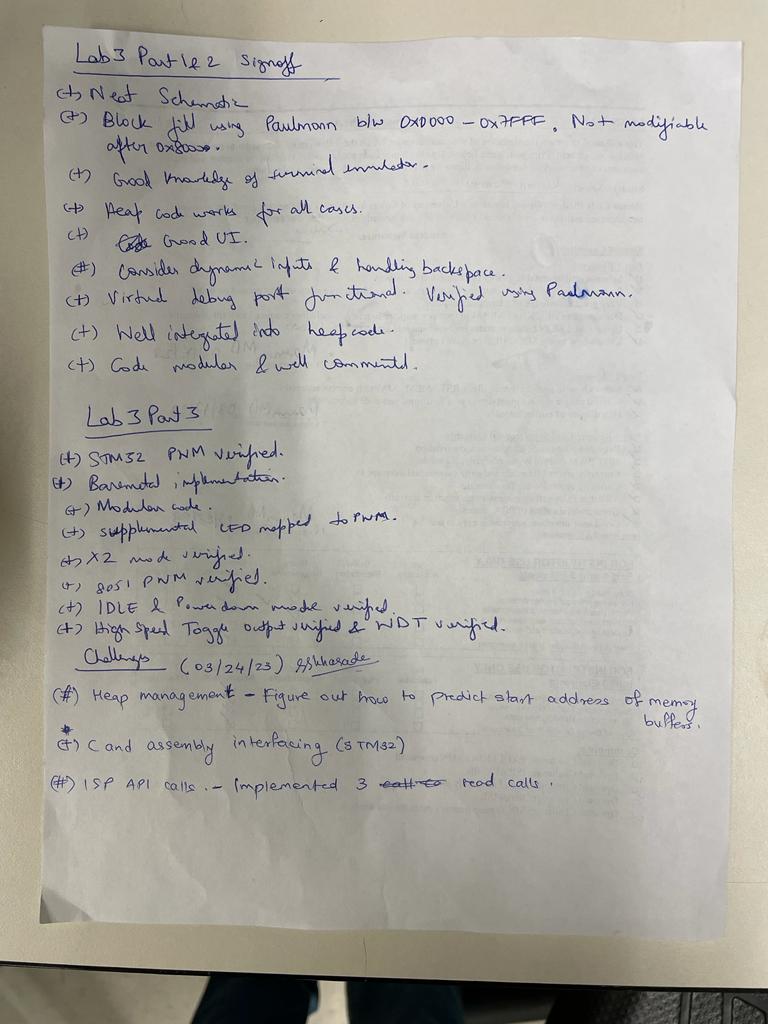 Lab 3 Part 1 & 2 Signoff
(+) Neat Schematic
(+) Block fill using Paulmann b/w 0x0000 - 0x7FFF. Not modifiable
after 0x8000.
(+) Good knowledge of terminal emulator.
(+) Heap code works for all cases.
(+) Good UI.
(#) Consider dynamic inputs & handling backspace.
(+) Virtual debug port functional. Verified using Paulmann.
(+) Well integrated into heap code.
(+) Code modular & well commented.
Lab 3 Part 3
(+) STM32 PWM verified.
(+) Baremetal implementation.
(+) Modular code.
(+) supplemental LED mapped to PWM.
(+) X2 mode verified.
(+) 8051 PWM verified.
(+) IDLE & Power down mode verified.
(+) High Speed Toggle output verified & WDT verified.
Challenges (03/24/23) SSkharade
(#) Heap management - Figure out how to predict start address of memory
buffers.
(+) C and assembly interfacing (STM32)
(#) ISP API calls. - Implemented 3 read calls.